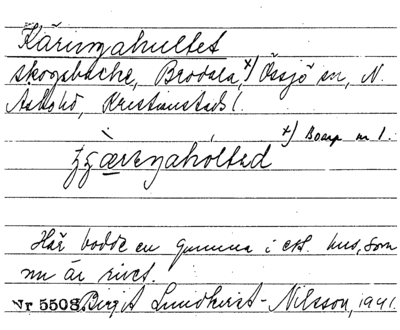 Käringahultet
skogsbacke, Brodala, x) Össjö sn, N.
Åsbo hd, Kristianstads l.
x) Boarp nr 1.
Här bodde en gumma i ett hus, som
nu är rivet.
Nr 5508. Birgit Lundkvist-Nilsson, 1941.